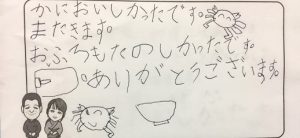 かにおいしかったです。
またきます。
おふろもたのしかったです。
ありがとうございます。